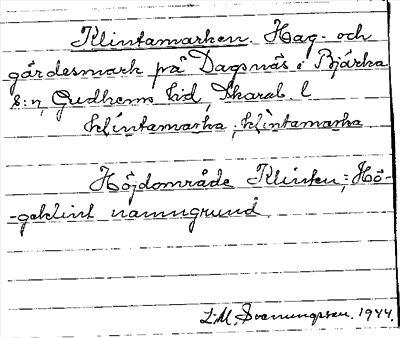 Klintamarken. Hag- och
gärdesmark på Dagsnäs i Bjärka
s:n, Gudhems hd, Skarab. l
klintamarka; klintamarka
Höjdområde Klinten; Hö-
-gaklint namngrund
L.M. Svenungsson. 1944.